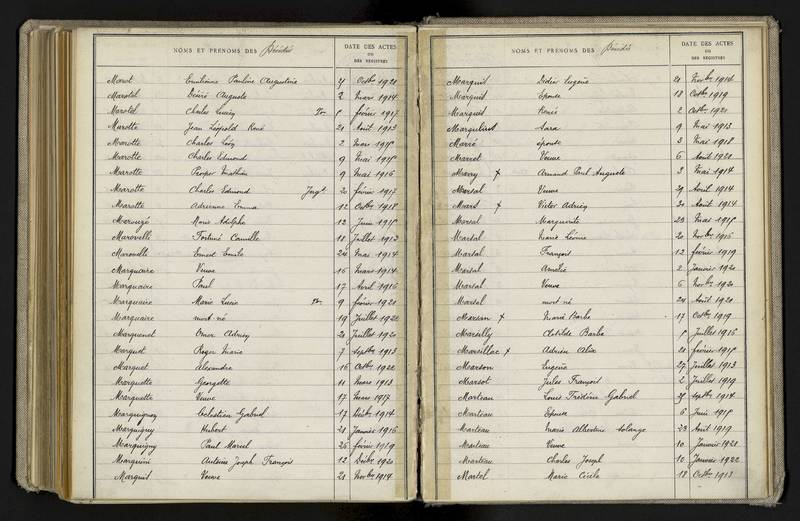 NOMS ET PRÉNOMS DES Décédés
DATE DES ACTES
OU
DES REGISTRES
Marot Emilienne Pauline Augustine Octbre 1920
Marotel Désiré Auguste 2 Mars 1914
Marotel Charles Lucien février 1917
Marotte Jean Léopold René 21 Août 1913
Marotte Charles Léon 2 Mars 1918
Marotte Charles Edmond 9 Mai 1918
Marotte Prosper Mathieu 9 Mai 1916
Marotte Charles Edmond Jugt 20 février 1917
Marotte Adrienne Emma 12 Octbre 1918
Marouzé Marie Adolphe 12 Juin 1918
Marovelli Fortuné Camille 18 Juillet 1913
Marovelli Ernest Emile 24 Mai 1914
Marquaire Veuve 16 Mars 1914
Marquaire Paul 17 Avril 1916
Marquaire Marie Lucie 9 février 1920
Marquaire mort né 19 Juillet 1922
Marquenet Omer 20 Juillet 1920
Marquet Roger Marie 7 Septbre 1913
Marquet Alexandre 16 Octbre 1922
Marquette Georgette 11 Mars 1913
Marquette Veuve 17 Mars 1917
Marquigny Célestien Gabriel 17 Décbre 1914
Marquigny Hubert 21 Janvier 1916
Marquigny Paul Marcel 26 février 1919
Marquini Antoine Joseph François 12 Décbre 1920
Marquis Veuve 21 Novbre 1914
NOMS ET PRÉNOMS DES Décédés
DATE DES ACTES
OU
DES REGISTRES
Marquis Didier Eugène 21 Novbre 1914
Marquis Epouse 18 Octbre 1919
Marquis René 2 Octbre 1921
Sara 9 Mai 1913
Marré épouse 3 Mai 1918
Veuve 6 Août 1920
Marry x Armand Paul Auguste 3 Mai 1914
Marsal Veuve 29 Avril 1914
x Victor 20 Août 1914
Marsal Marguerite 23 Mai 1918
Marsal Marie 20 Novbre 1916
Marsal François 12 février 1919
Marsal Amélie 2 Janvier 1920
Marsal Veuve 6 Novbre 1920
Marsal mort né 24 Août 1920
x Marie Barbe 17 Octbre 1919
Marsilly Clotilde Barbe Juillet 1916
Marsillac x Adrien Alix 21 février 1918
Marson Eugène 27 Juillet 1913
Marsot Jules François 2 Juillet 1919
Marteau Louis Frédéric Gabriel Septbre 1914
Marteau Epouse 6 Juin 1918
Marteau Marie Albertine Solange 23 Août 1919
Marteau Veuve 10 Janvier 1921
Marteau Charles Joseph 10 Janvier 1922
Martel Marie Cécile 18 Octbre 1913